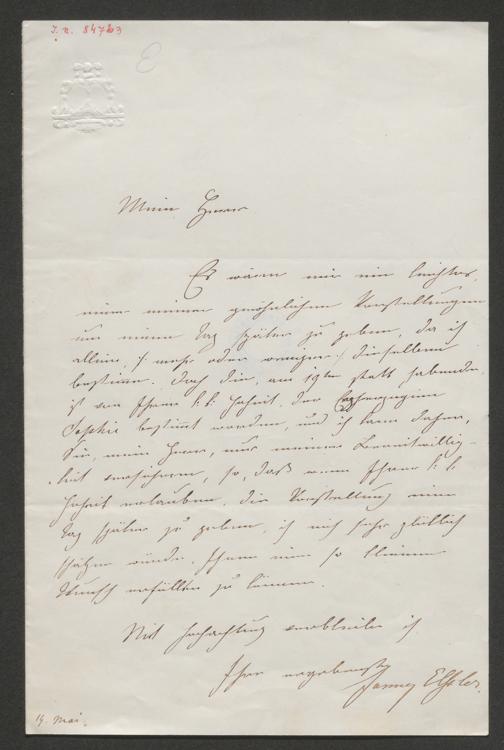 I. N. 84723
Mein Herr
Es wäre mir ein leichtes,
eine meiner gewöhnlichen Vorstellungen
um einen Tag später zu geben, da ich
alleine /: mehr oder weniger :/ dieselben
bestimme. Doch die, am 19ten statt habende,
ist von Ihrer k: k: Hoheit, der Erzherzogin
Sophie bestimt worden, und ich kann daher,
Sie, mein Herr, nur meiner Bereitwillig-
keit versichern, so, daß wenn Ihre k: k:
Hoheit erlauben, die Vorstellung einen
Tag später zu geben, ich mich sehr glücklich
schätzen würde, Ihnen einen so kleinen
Wunsch erfüllen zu können.
Mit Hochachtung verbleibe ich
Ihre ergebenste
Fanny Elßler.
19. Mai.